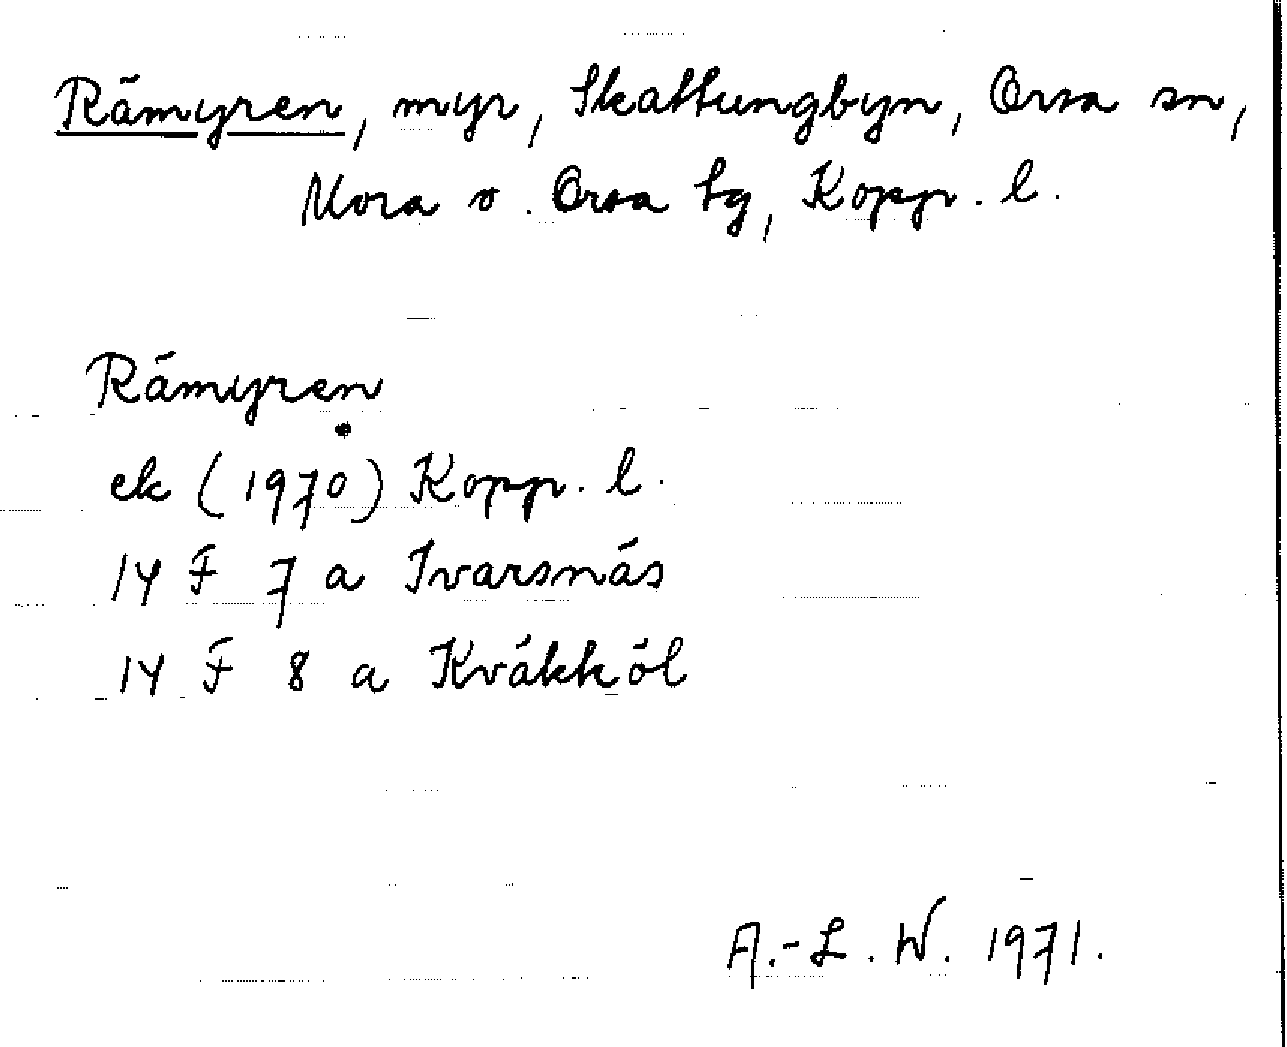 Rämyren, myr, Skattungbyn, Orsa sn,
Mora o. Orsa tg, Kopp. l.
Rämyren
ek (1970) Kopp. l.
14 F 7 a Ivarsnäs
14 F 8 a Kväkköl
A.-L. W. 1971.